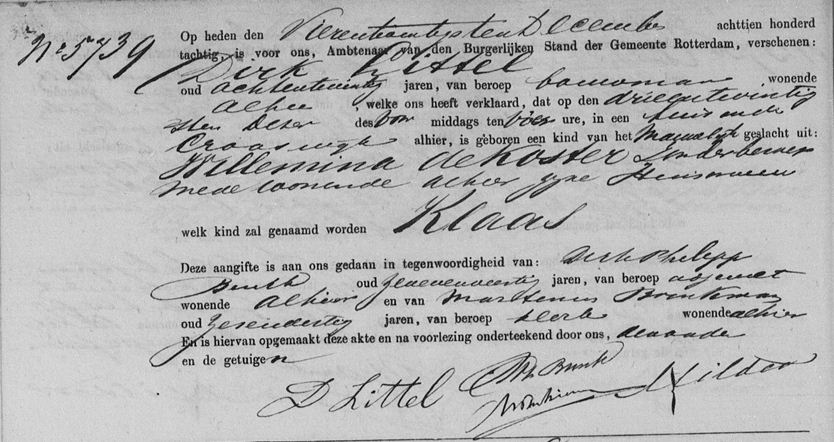 No 5739
Op heden den Vierentwintigsten December achttien honderd
tachtig, is voor ons, Ambtenaar van den Burgerlijken Stand der Gemeente Rotterdam, verschenen:
Dirk Littel
oud achtentwintig jaren, van beroep bouwman wonende
alhier, welke ons heeft verklaard, dat op den drieentwintig
sten dezer des voor middags ten vier ure, in een huis aan de
Crooswijk alhier, is geboren een kind van het Mannelijk geslacht uit:
Willemina de Koster zonder beroep
mede wonende alhier zijne Huisvrouw
welk kind zal genaamd worden Klaas
Deze aangifte is aan ons gedaan in tegenwoordigheid van: Dirk Philipp
oud zevenenveertig jaren, van beroep
wonende alhier en van Marthenus Brinkman
oud zesendertig jaren, van beroep klerk wonende alhier
En is hiervan opgemaakt deze akte en na voorlezing onderteekend door ons, den vader
en de getuigen
D Littel